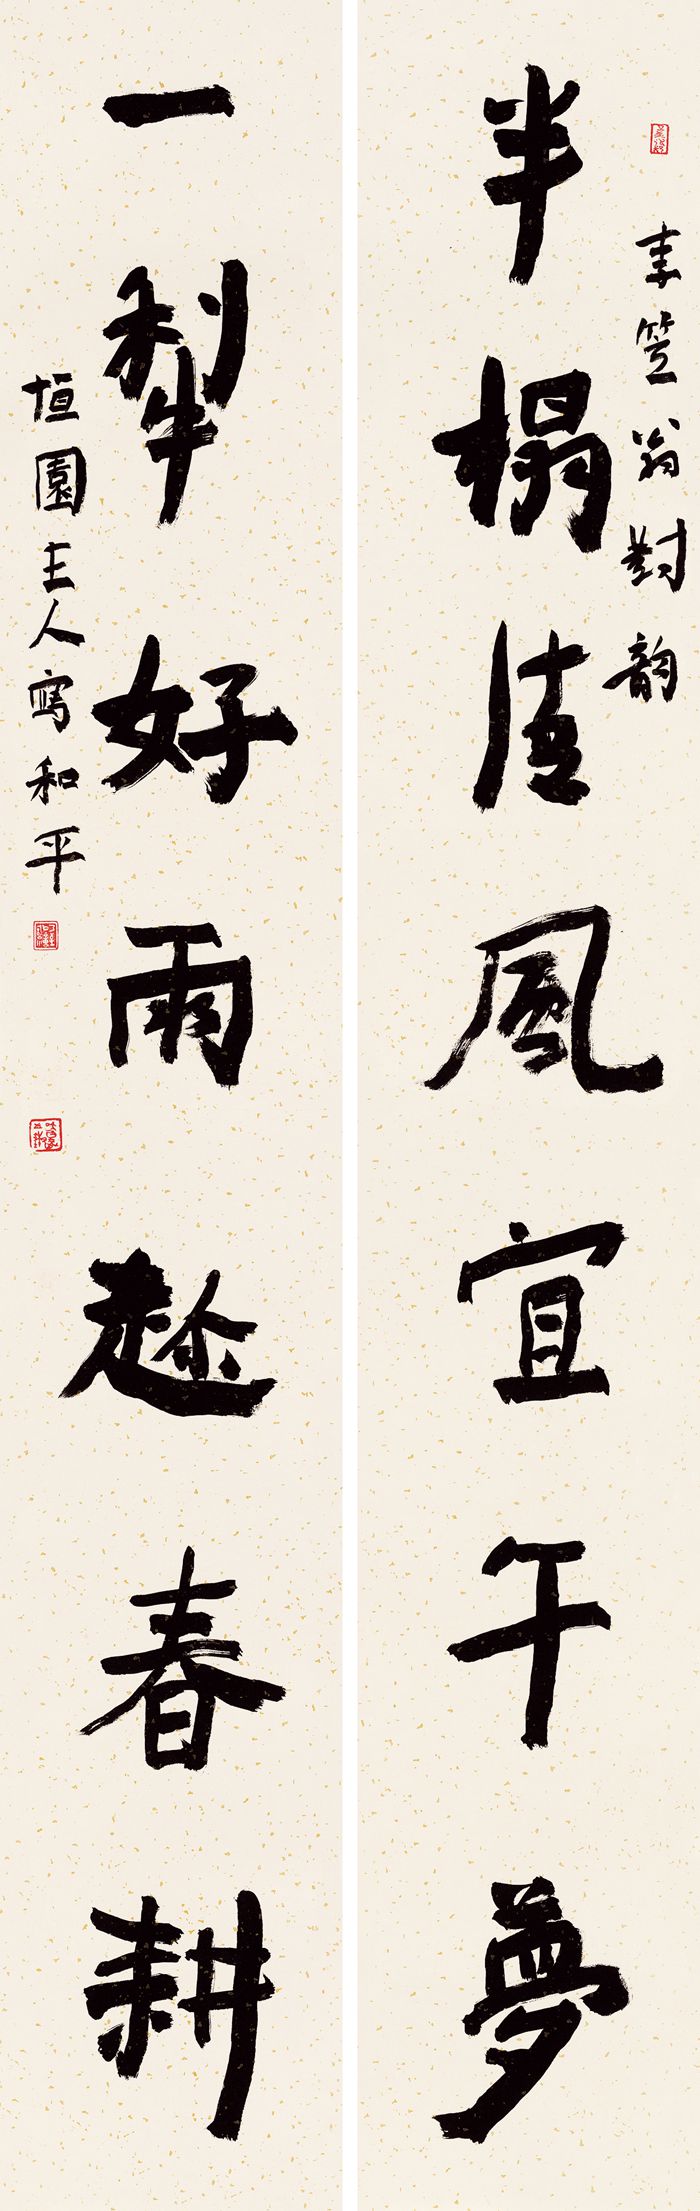 李笠翁對韵
半榻清風宜午夢
一犁好雨趂春耕
恒園主人寫和平